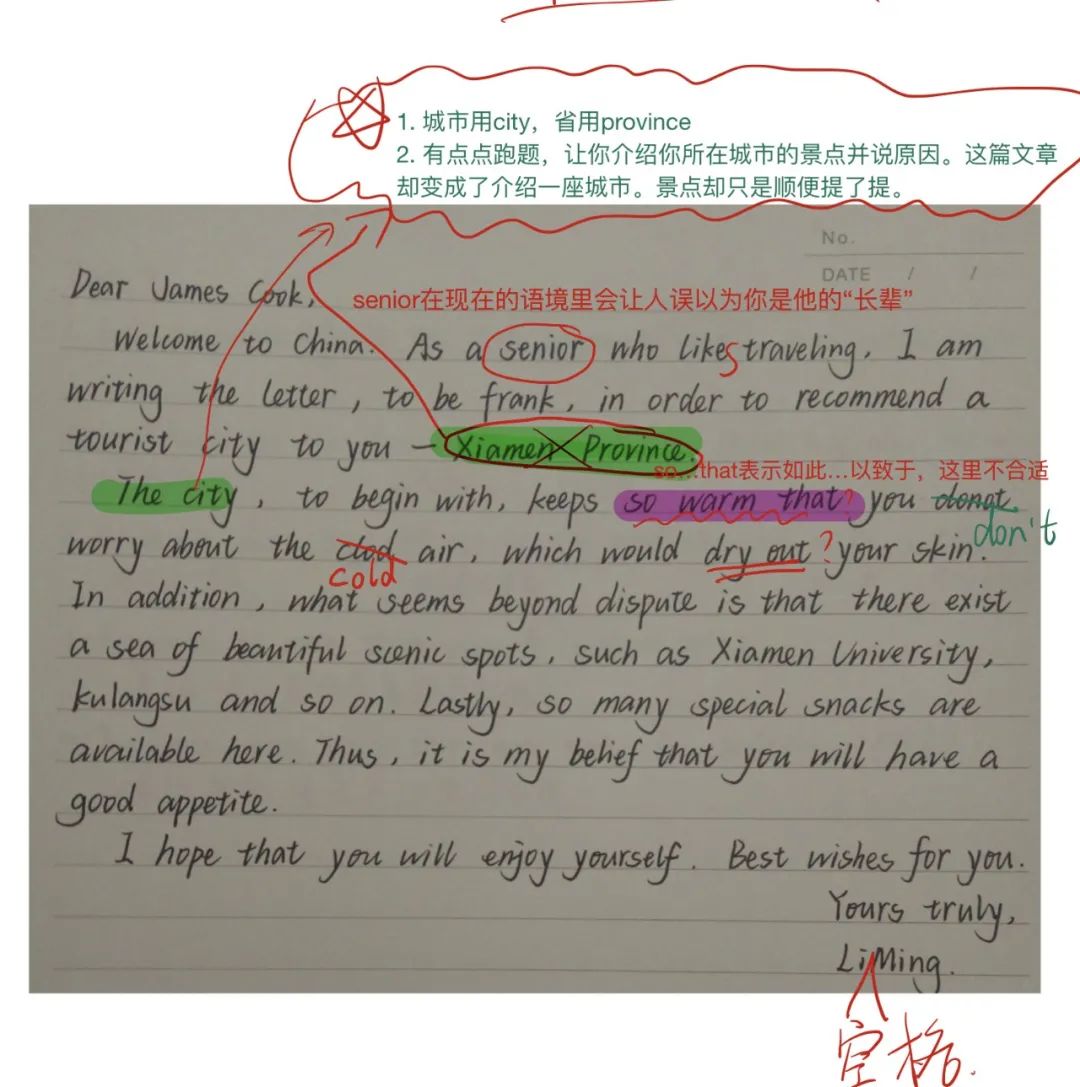 1. 城市用city，省用province
2. 有点点跑题，让你介绍你所在城市的景点并说原因。这篇文章
却变成了介绍一座城市。景点却只是顺便提了提。
No.
DATE / /
Dear James Cook,
senior在现在的语境里会让人误以为你是他的“长辈”
Welcome to China. As a senior who likes traveling, I am
writing the letter, to be frank, in order to recommend a
tourist city to you — Xiamen Province.
so...that表示如此...以致于，这里不合适
The city, to begin with, keeps so warm that? you donot
don't
worry about the clod air, which would dry out? your skin.
cold
In addition, what seems beyond dispute is that there exist
a sea of beautiful scenic spots, such as Xiamen University,
kulangsu and so on. Lastly, so many special snacks are
available here. Thus, it is my belief that you will have a
good appetite.
I hope that you will enjoy yourself. Best wishes for you.
Yours truly,
LiMing.
空格.